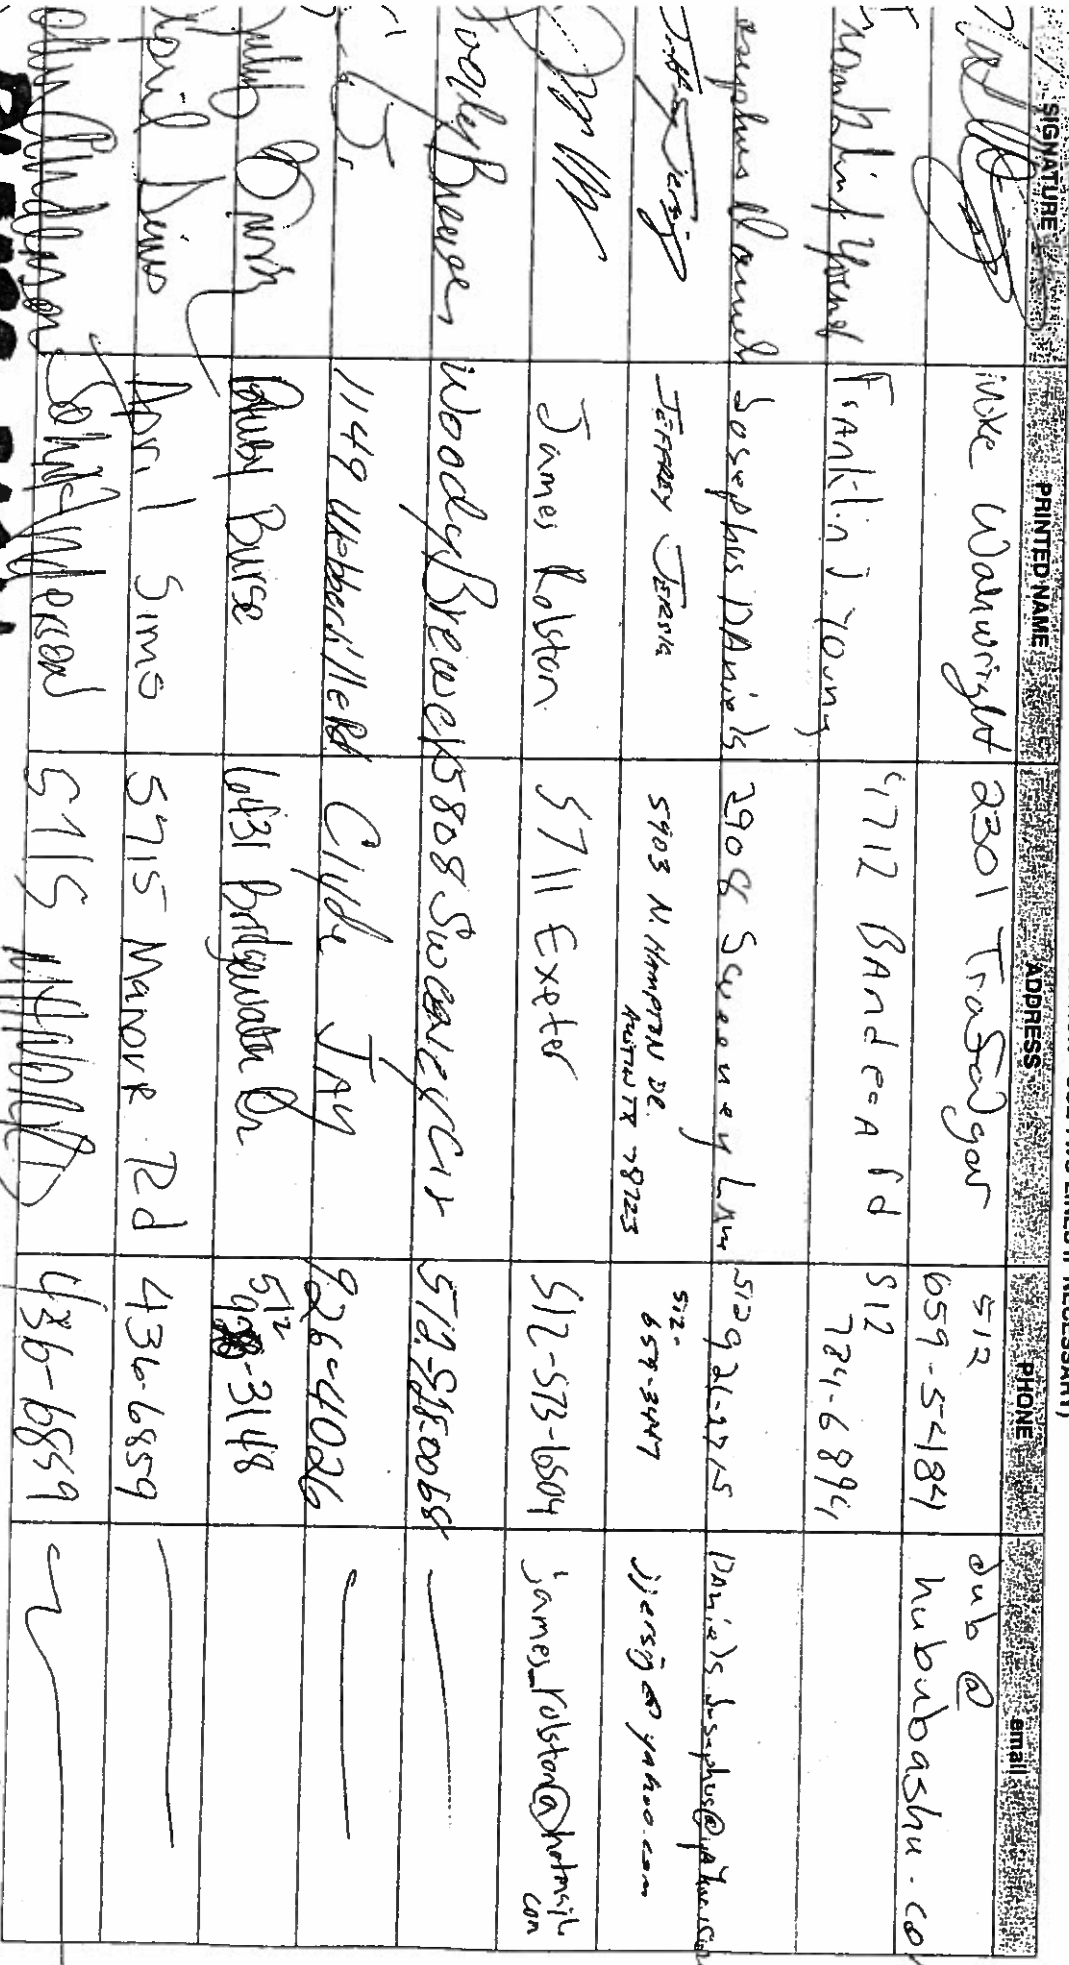 SIGNATURE PRINTED NAME ADDRESS PHONE email
Mike Wainwright 2301 Trafalgar 512 659-5484 dub@
hububashu.co
Franklin J. Young 4712 Bandera rd 512
784-6894
Josephus Daniels 2908 Sweeney Lane 512 926-9715
Jeffrey Jersig JEFFREY JERSIG 5903 N. HAMPTON DR. 512-
AUSTIN TX 78723 659-3447 jjersig@yahoo.com
James Rolston 5711 Exeter 512-573-6504 james_rolston@hotmail.
com
Woody Brewer Woody Brewer 5808 Sweeney Cir
1149 Webberville Rd Clyde JAy 926-4026
Ruby Burse 6431 Bridgewater Dr 512
-3148
April Sims April Sims 5715 Manor Rd 436-6859
John Anderson 5715 436-6859